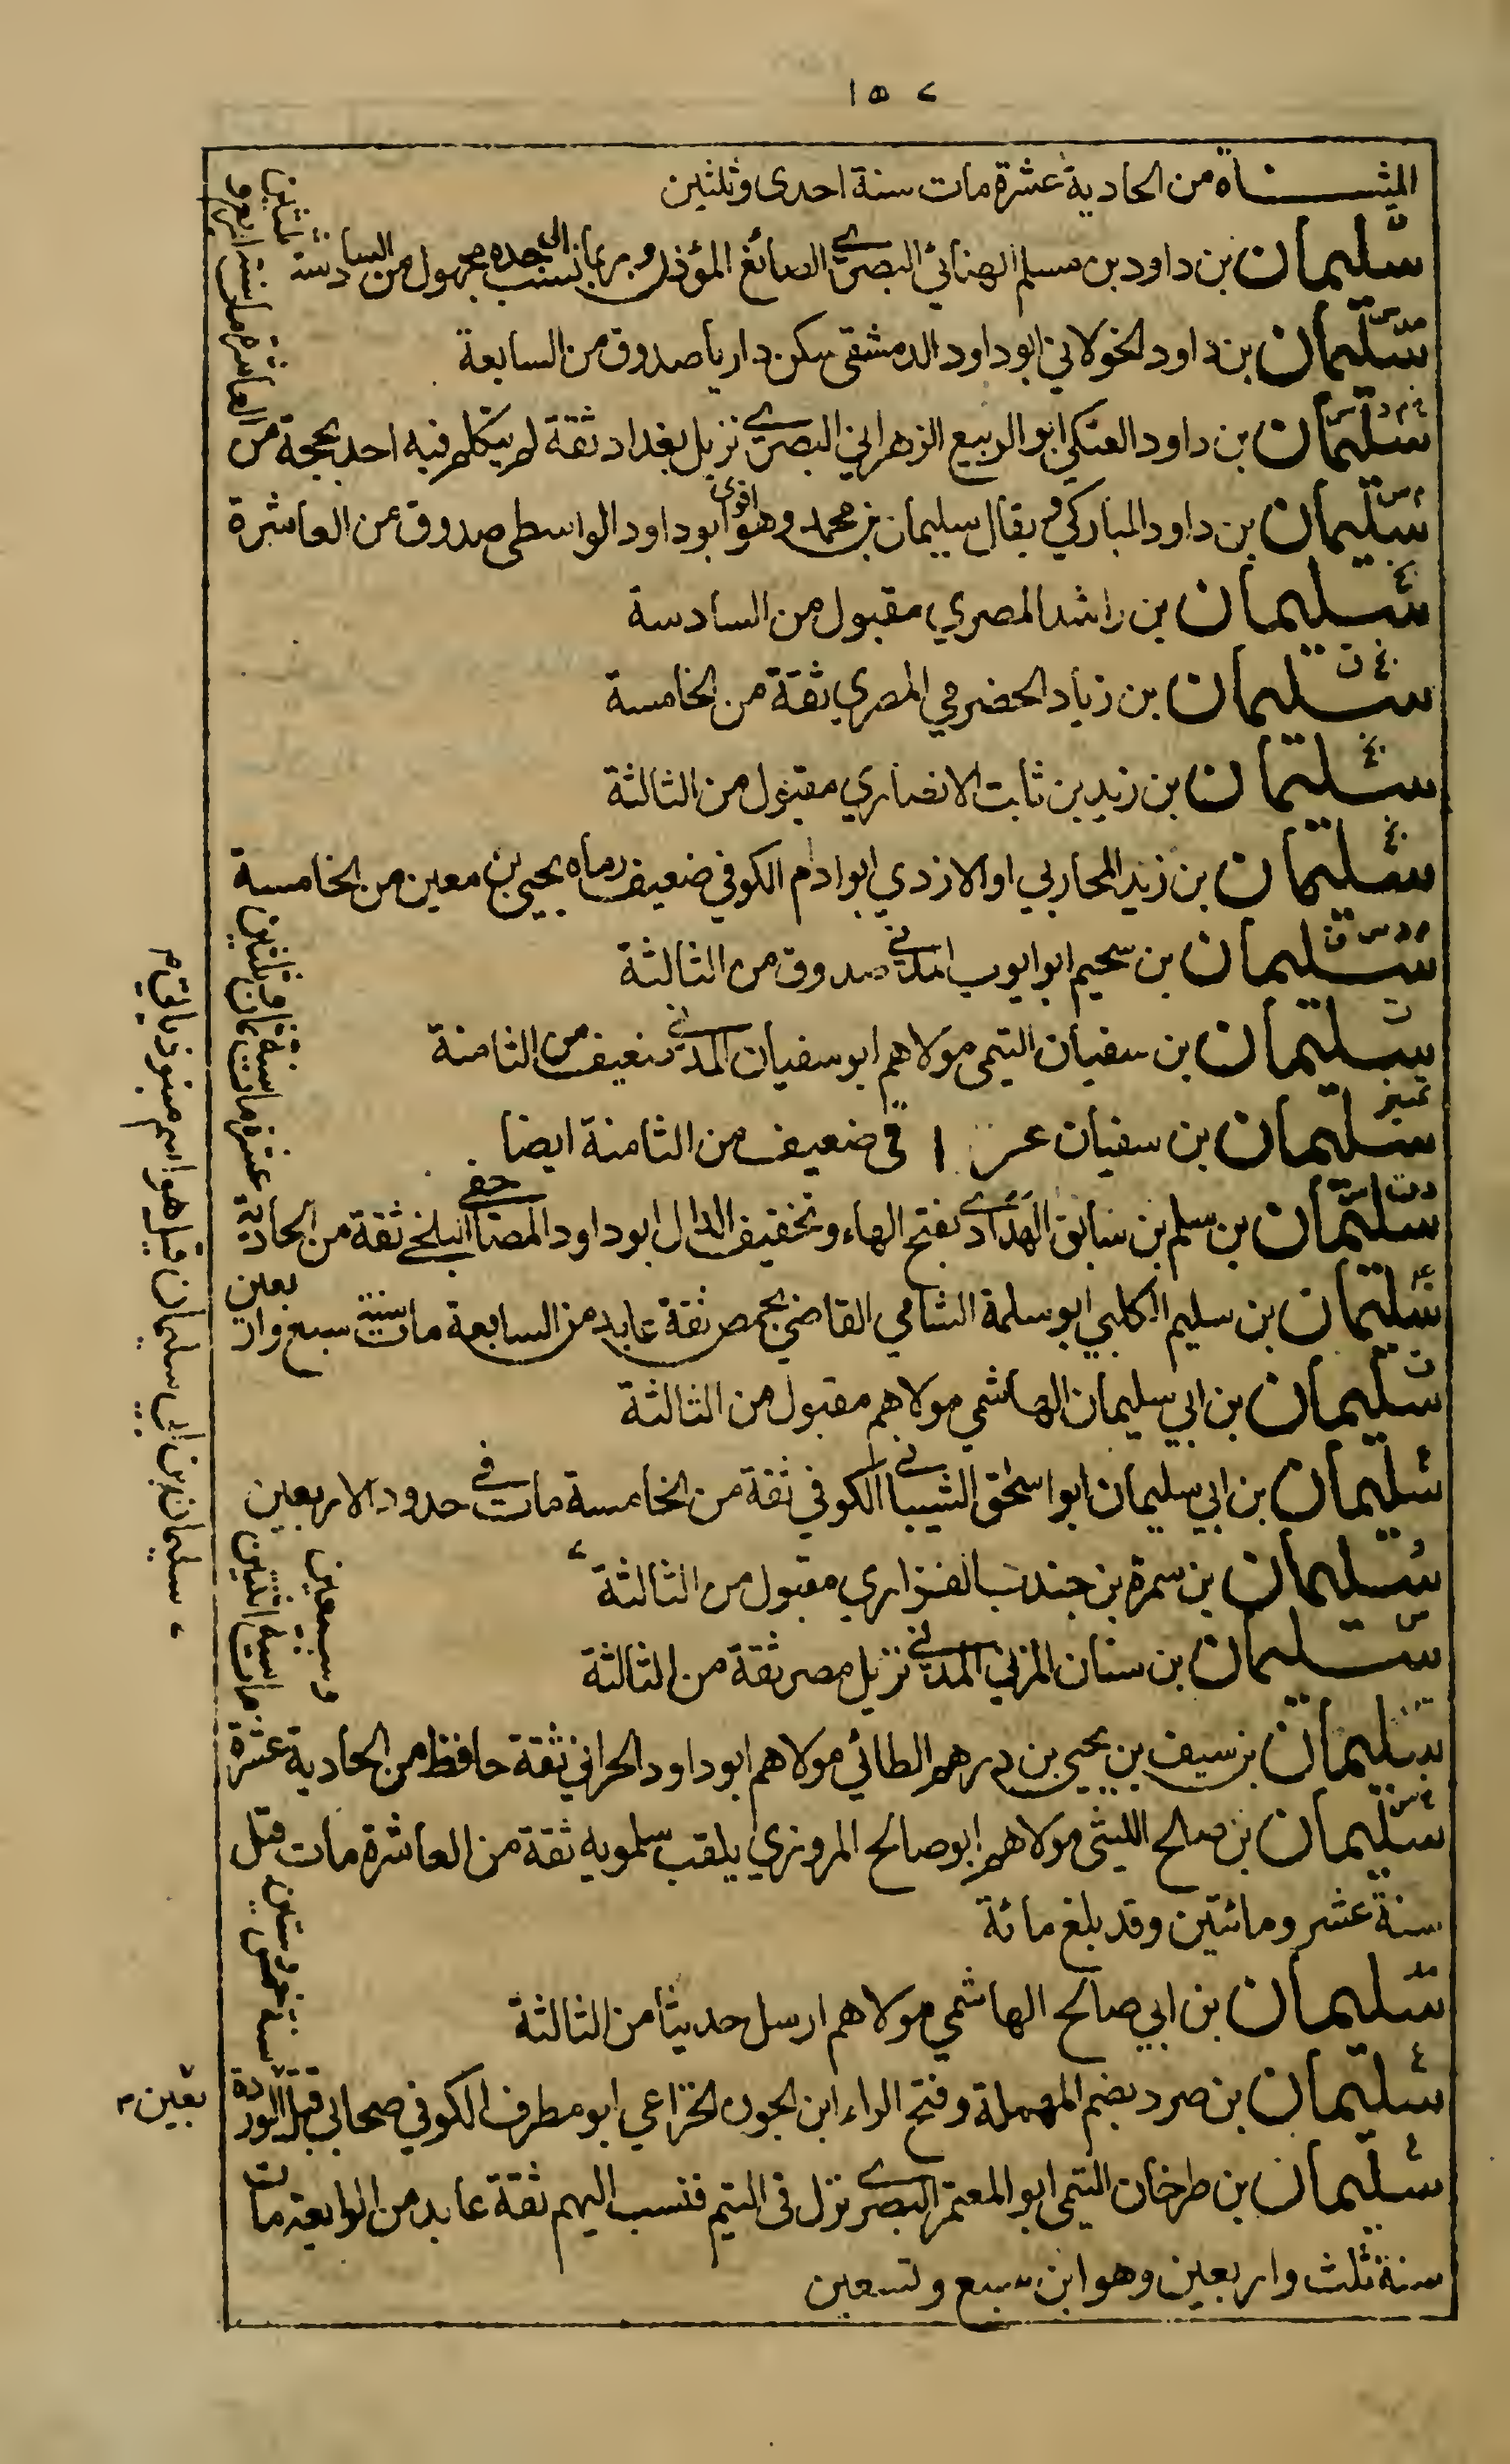 ١٥٧
المثناة من الحادية عشرة مات سنة احدى وثلثين
سليمان بن داود بن مسلم الهنائي البصري الصائغ المؤذن وربما نسب الى جده مجهول من السادسة
سليمان بن داود الخولاني ابو داود الدمشقي سكن داريا صدوق من السابعة
سليمان بن داود العتكي ابو الربيع الزهراني البصري نزيل بغداد ثقة لم يتكلم فيه احد بحجة من
العاشرة مات سنة اربع و
ثلثين
سليمان بن داود المباركي ويقال سليمان بن محمد وهو اقوى ابو داود الواسطي صدوق من العاشرة
سليمان بن راشد المصري مقبول من السادسة
سليمان بن زياد الحضرمي المصري ثقة من الخامسة
سليمان بن زيد بن ثابت الانصاري مقبول من الثالثة
سليمان بن زيد المحاربي او الازدي ابو ادام الكوفي ضعيف رماه يحيى بن معين من الخامسة
سليمان بن سحيم ابو ايوب المدني صدوق من الثالثة
سليمان بن سفيان التيمي مولاهم ابو سفيان المدني ضعيف من الثامنة
تمييز
سليمان بن سفيان عر ا في ضعيف من الثامنة ايضا
سليمان بن سلم بن سابق الهدادي بفتح الهاء وتخفيف الدال ابو داود المصاحفي البلخي ثقة من الحادية
عشرة مات سنة ثمان وثلثين
سليمان بن سليم الكلبي ابو سلمة الشامي القاضي بحمص ثقة عابد من السابعة مات سنة سبع وار
بعين
سليمان بن ابي سليمان الهاشمي مولاهم مقبول من الثالثة
سليمان بن ابي سليمان ابو اسحق الشيباني الكوفي ثقة من الخامسة مات في حدود الاربعين
سليمان بن سمرة بن جندب الفزاري مقبول من الثالثة
سليمان بن سنان المزني المدني نزيل مصر ثقة من الثالثة
سليمان بن سيف بن يحيى بن درهم الطائي مولاهم ابو داود الحراني ثقة حافظ من الحادية عشرة
مات سنة اثنتين
وسبعين
سليمان بن صالح الليثي مولاهم ابو صالح المروزي يلقب سلمويه ثقة من العاشرة مات قبل
سنة عشر ومائتين وقد بلغ مائة
سليمان بن ابي صالح الهاشمي مولاهم ارسل حديثا من الثالثة
سليمان بن صرد بضم المهملة وفتح الراء ابن الجون الخزاعي ابو مطرف الكوفي صحابي قتل بعين الوردة
سنة خمس وستين
سليمان بن طرخان التيمي ابو المعتمر البصري نزل في التيم فنسب اليهم ثقة عابد من الرابعة مات
سنة ثلث واربعين وهو ابن سبع وتسعين
سليمان بن ابي سليمان قيل هو اسم